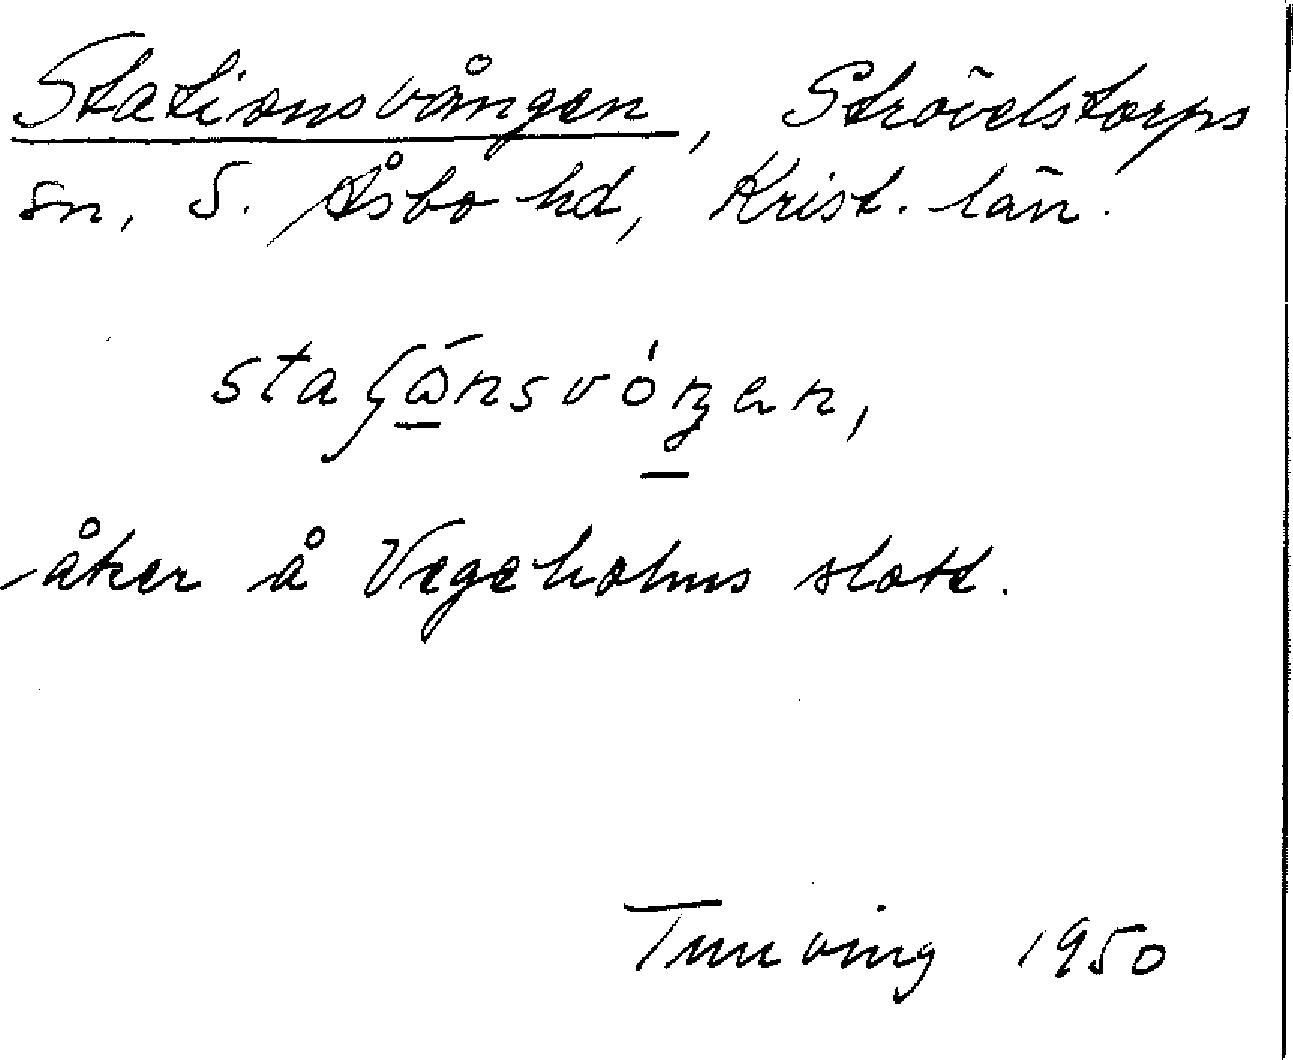 Stationsvången, Strövelstorps
sn, S. Åsbo hd, Krist. län.
åker å Vegeholms slott.
1950